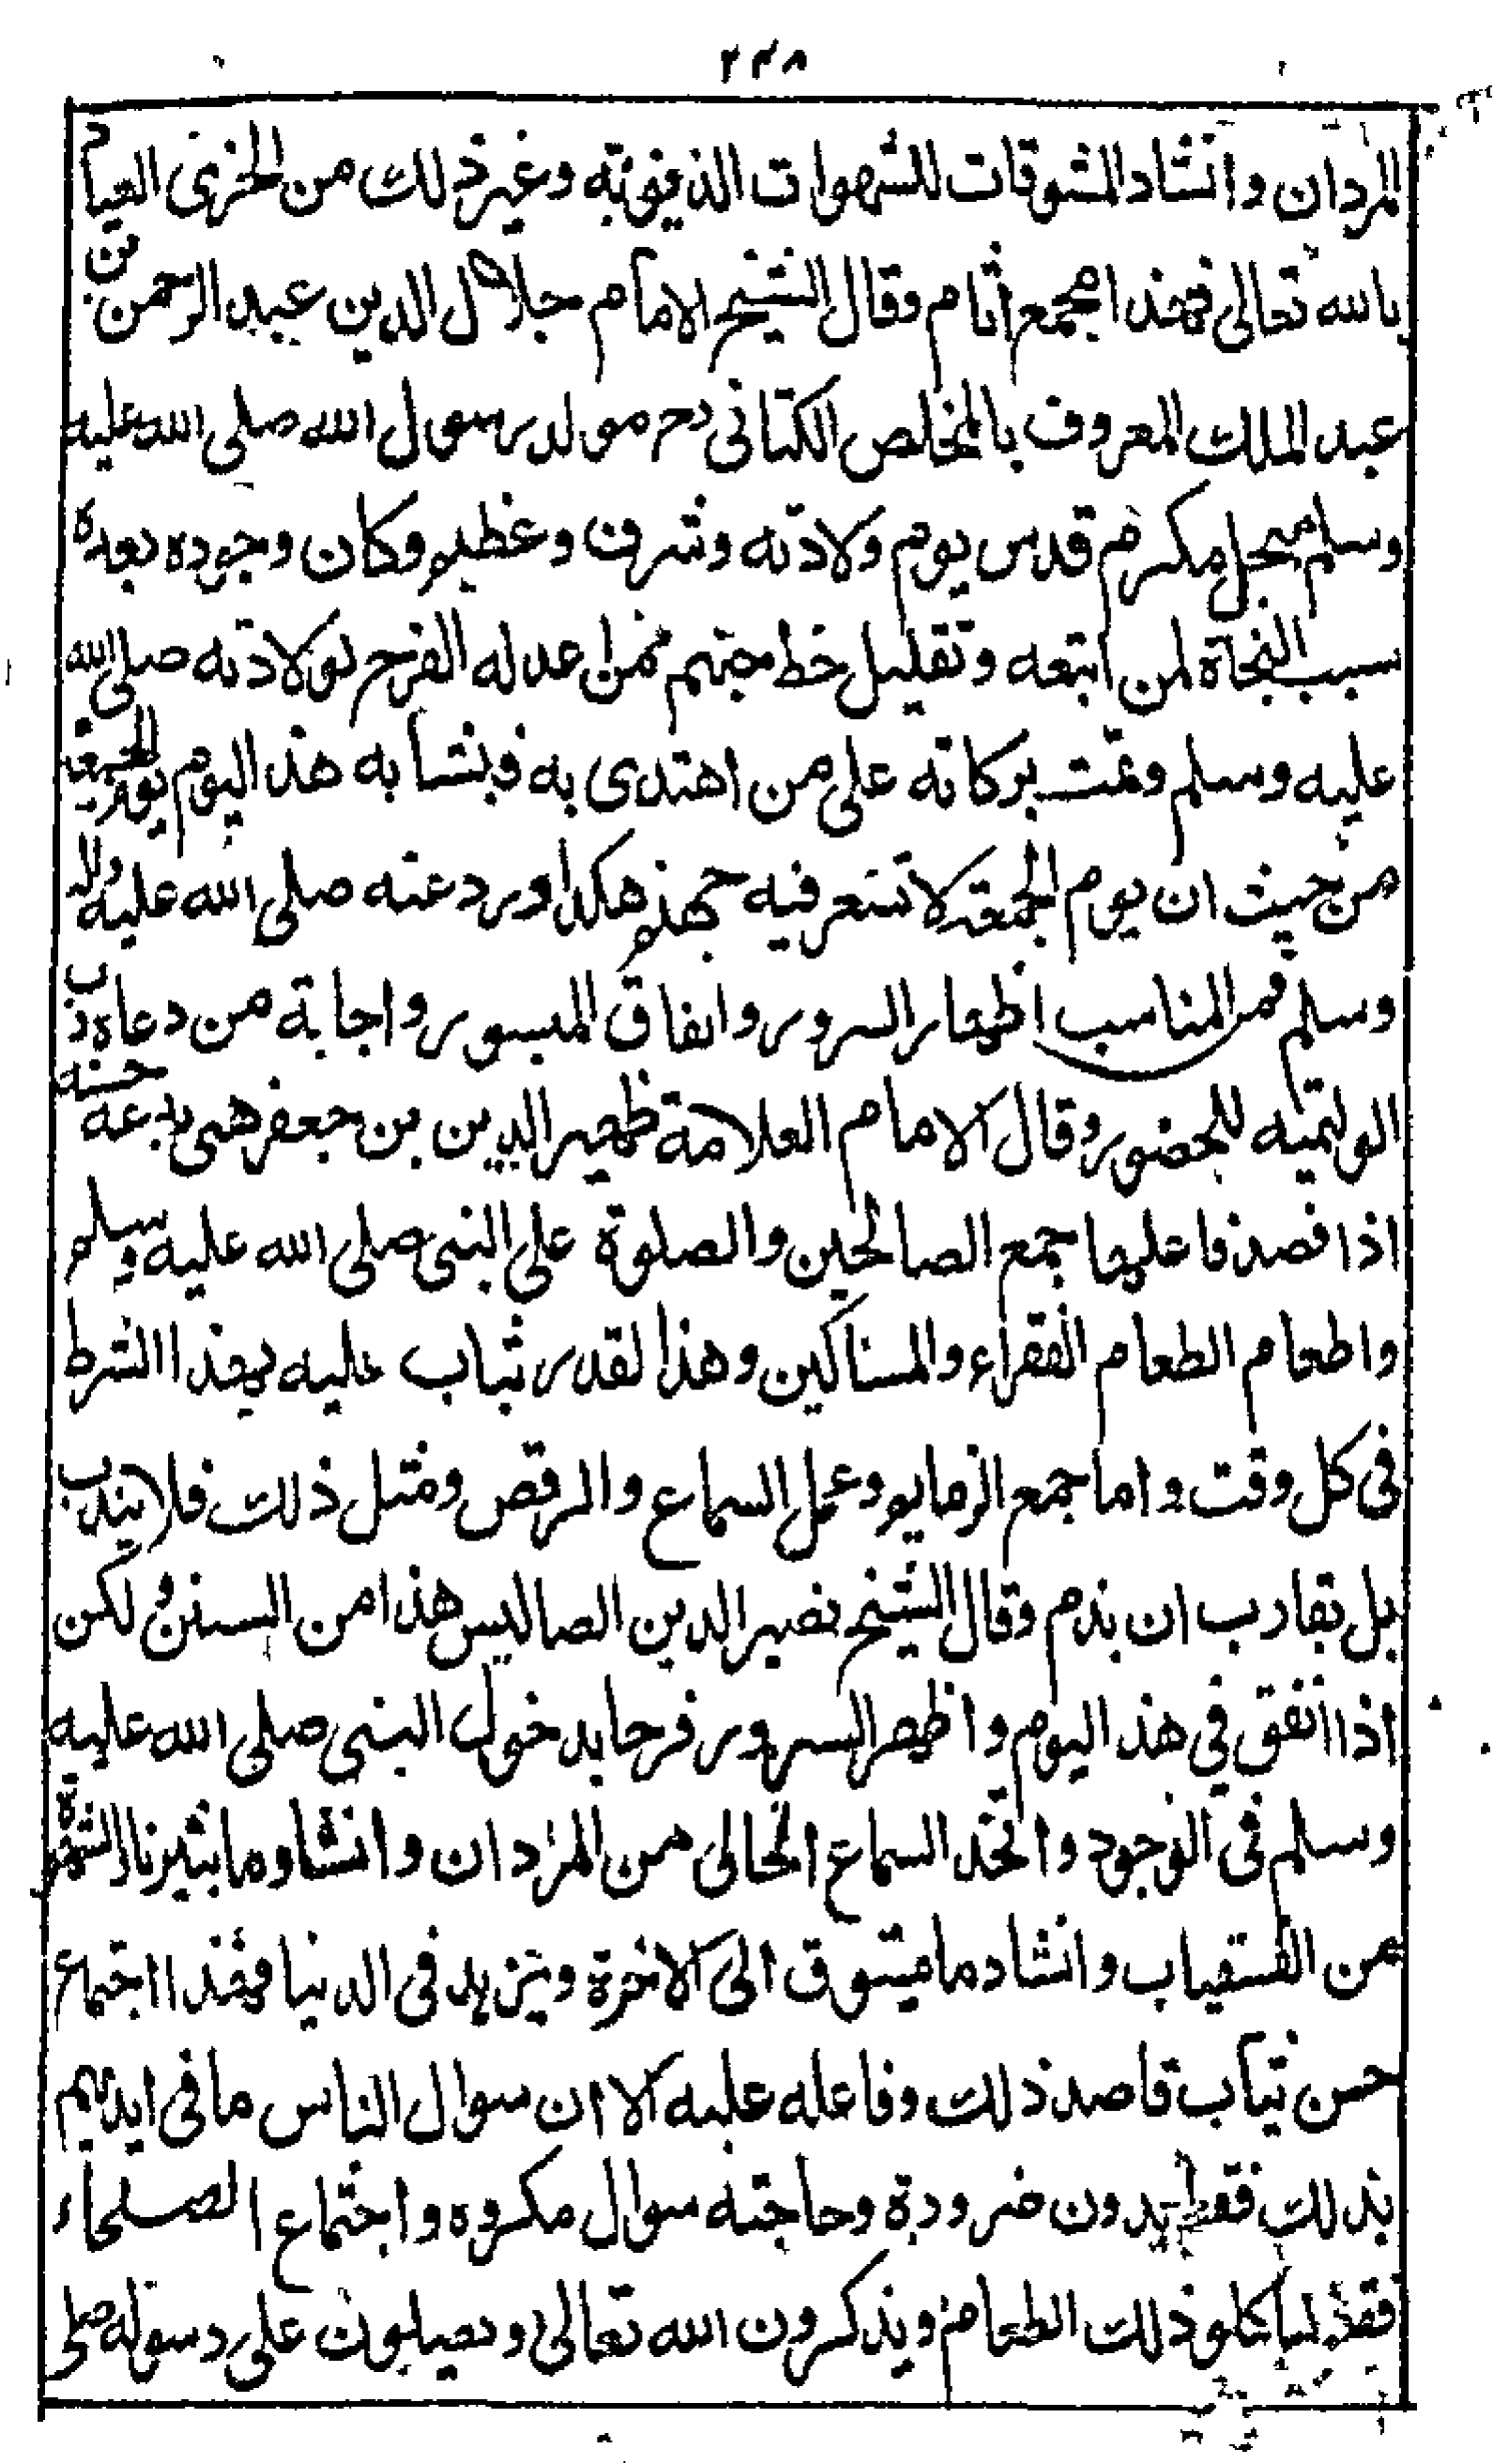 ٢٣٨
المردان وانشاد المشوقات للشهوات الذيفوته وغير ذلك من الخزى العياذ
بالله تعالى فهذا مجمع اثام وقال الشيخ الامام جلال الدين عبد الرحمن بن
عبد الملك المعروف بالمخلص الكتانى رح مولد رسول الله صلى الله عليه
وسلم مبجل مكرم قدس يوم ولادته وشرف وعظيم وكان وجوده بعده
سبب النجاة لمن اتبعه وتقليل خط جهنم لمن اعد له الفرح بولادته صلى الله
عليه وسلم وعمت بركاته على من اهتدى به فبتشابه هذا اليوم يوم الجمعة
من حيث ان يوم الجمعة لا تتعر فيه جهنم هكذا ورد عنه صلى الله عليه واله
وسلم فمن المناسب اظهار السرور وانفاق الميسور واجابة من دعاه رب
الوليمه للحضور وقال الامام العلامة ظهير الدين بن جعفر هى بدعة حسنه
اذا قصد فاعلها جمع الصالحين والصلوة على النبى صلى الله عليه وسلم
واطعام الطعام الفقراء والمساكين وهذا لقدر ثياب عليه بهذا الشرط
فى كل وقت واما جمع الزمايو وعمل السماع والرقص ومثل ذلك فلا يندب
بل يقارب ان يذم وقال الشيخ نصير الدين الصاليس هذا من السنن ولكن
اذا انفق في هذا اليوم واظهر السرور فرحا بدخول النبى صلى الله عليه
وسلم فى الوجود واتخد السماع الخالى من المردان وانشاو ما يثير نار الشهوة
من الفسقياب وانشاد ما يشوق الى الاخرة ويزيد فى الدنيا فهذا اجتماع
حسن يثاب قاصد ذلك وفاعله عليه الا ان سوال الناس ما فى ايديهم
بذلك فقط بدون ضرورة وحاجته سوال مكروه واجتماع الصلحاء
فقط لياكلو ذلك الطعام ويذكرون الله تعالى ويصلون على رسوله صلى